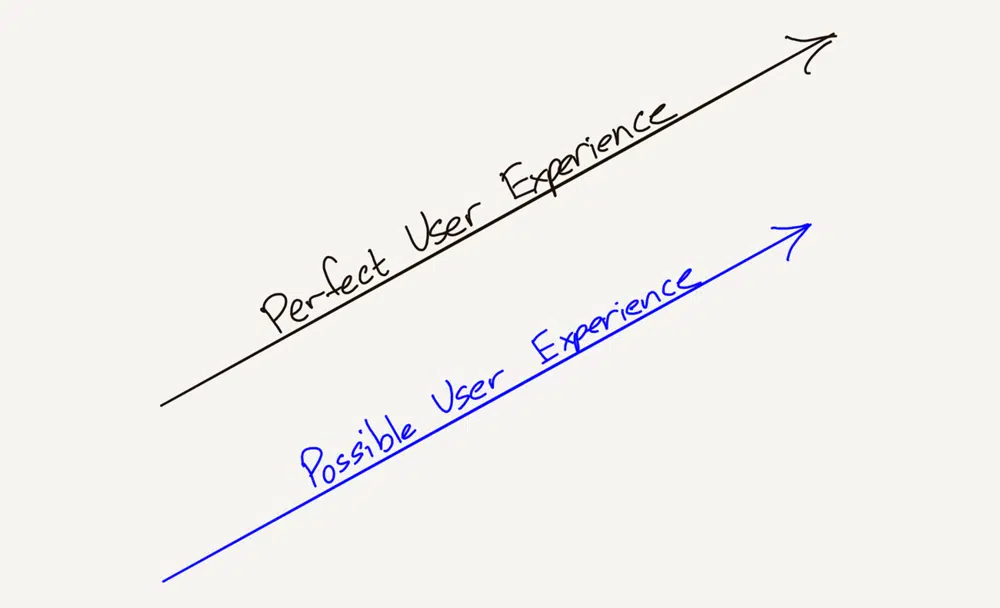 Perfect User Experience
Possible User Experience